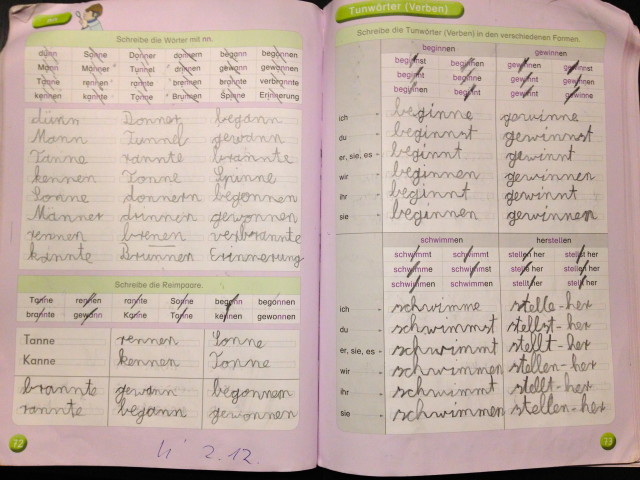 Schreibe die Wörter mit nn.
dünn Sonne Donner donnern begann begonnen
Mann Männer Tunnel drinnen gewann gewonnen
Tanne rennen rannte brennen brannte verbrannte
kennen kannte Tonne Brunnen Spinne Erinnerung
dünn Donner begann
Mann Tunnel gewann
Tanne rannte brannte
kennen Tonne Spinne
Sonne donnern begonnen
Männer drinnen gewonnen
rennen brenen verbrannte
kannte Brunnen Erinnerung
Schreibe die Reimpaare.
Tanne rennen rannte Sonne begann begonnen
brannte gewann Kanne Tonne kennen gewonnen
Tanne rennen Sonne
Kanne kennen Tonne
brannte gewann begonnen
rannte begann gewonnen
22
2.12.
Tunwörter (Verben)
Schreibe die Tunwörter (Verben) in den verschiedenen Formen.
beginnen gewinnen
beginnst beginnen gewinnen gewinnst
beginnt beginne gewinnt gewinnen
beginnen beginnt gewinnt gewinne
ich - beginne gewinne
du - beginnst gewinnst
er, sie, es - beginnt gewinnt
wir - beginnen gewinnen
ihr - beginnt gewinnt
sie - beginnen gewinnen
schwimmen herstellen
schwimmt schwimmt stellen her stellst her
schwimme schwimmst stelle her stellen her
schwimmen schwimmen stellt her stellt her
ich - schwimme stelle-her
du - schwimmst stellst-her
er, sie, es - schwimmt stellt-her
wir - schwimmen stellen-her
ihr - schwimmt stellt-her
sie - schwimmen stellen-her